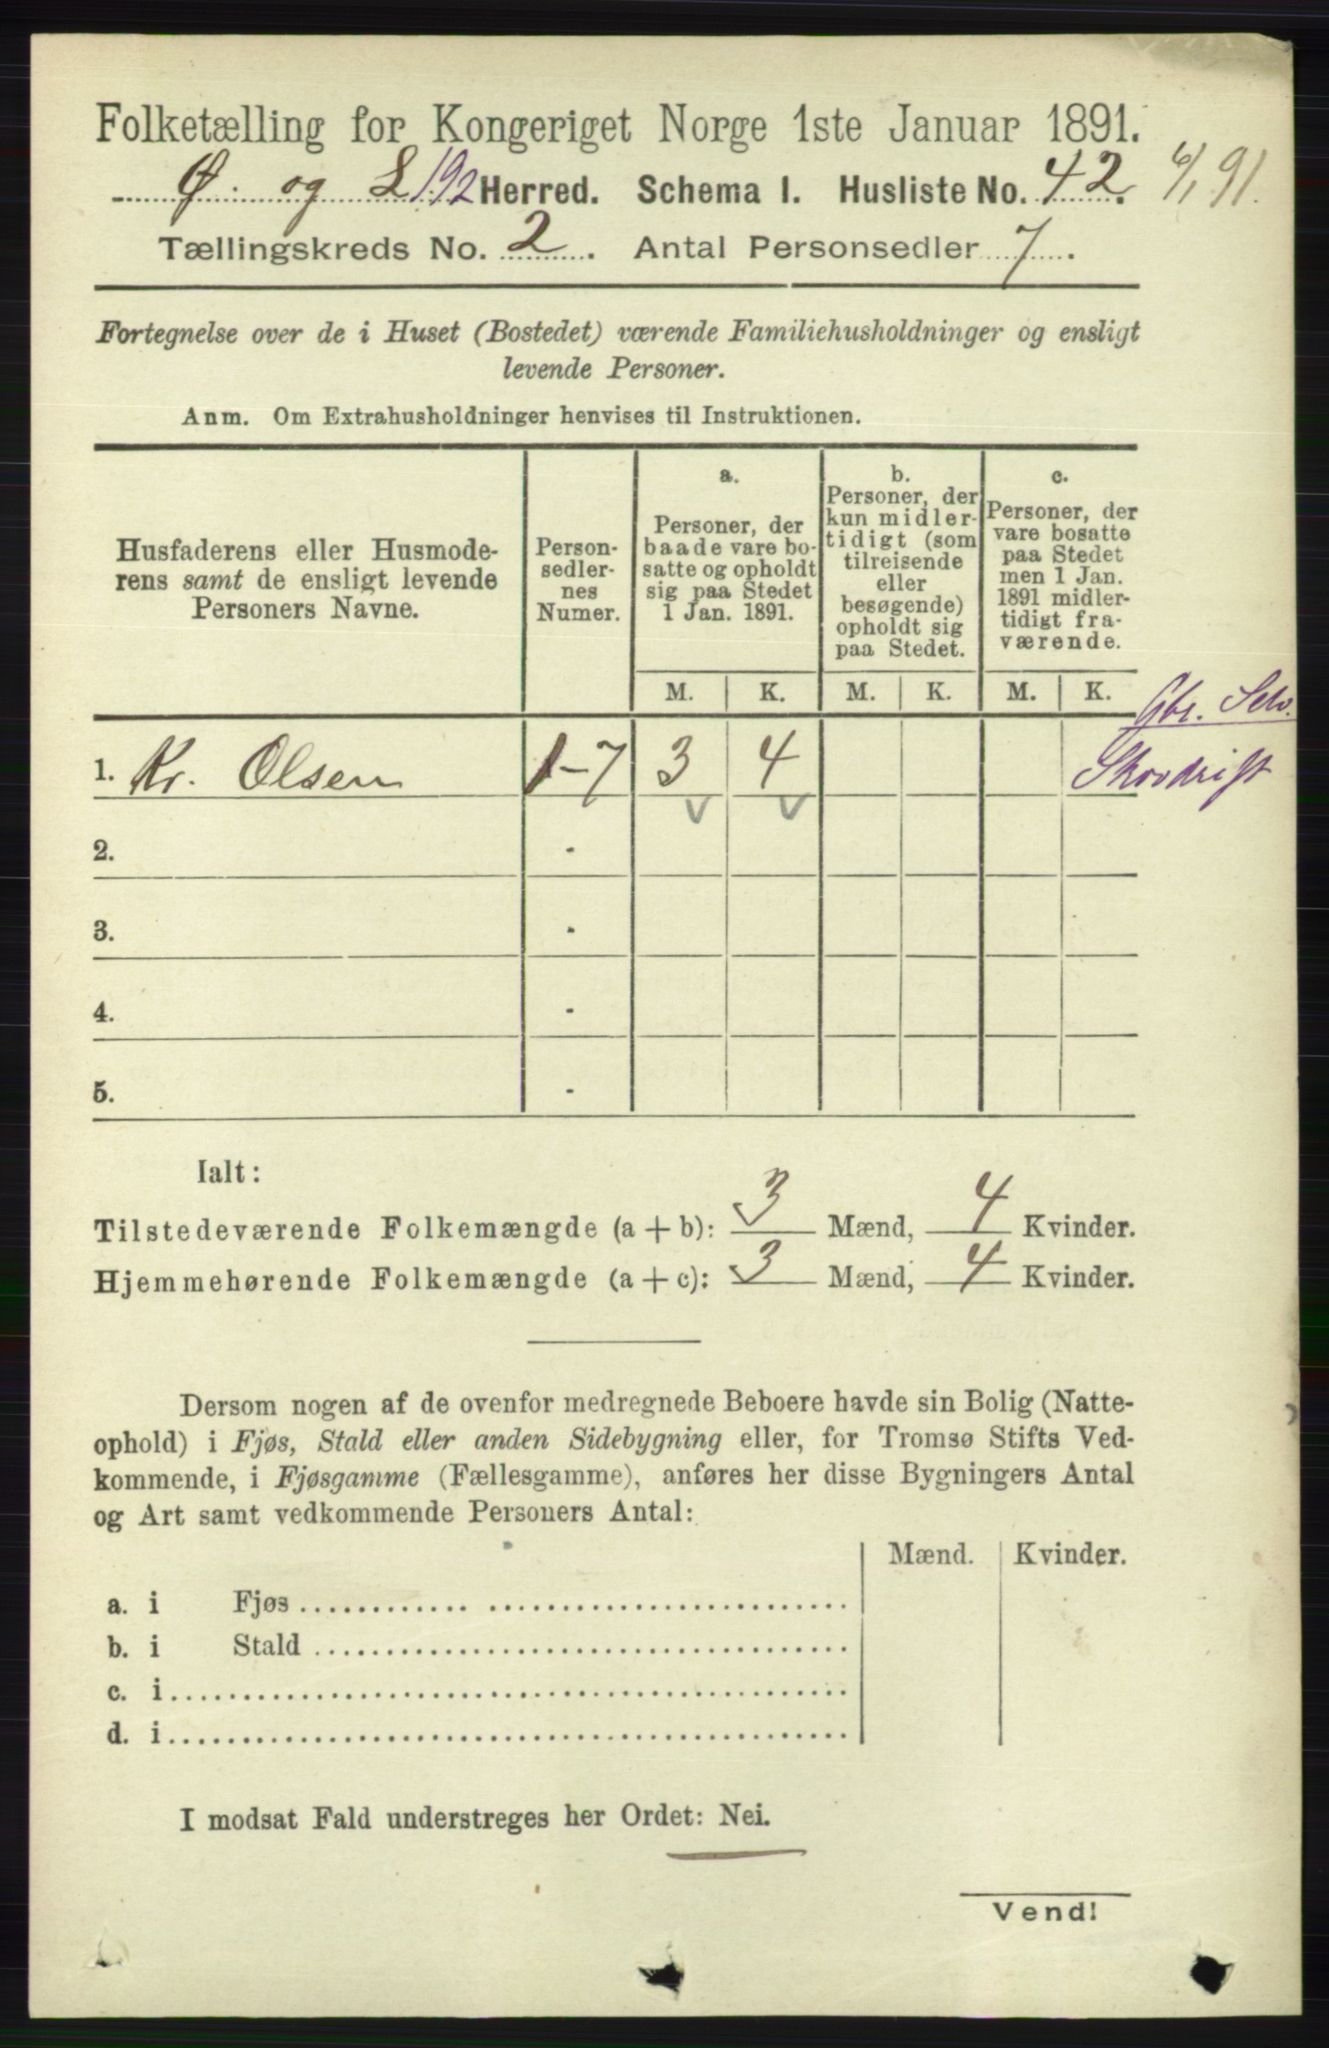 Folketælling for Kongeriget Norge 1ste Januar 1891.
Ø. og L 192 Herred. Schema 1. Husliste No. 42. 6/1 91.
Tællingskreds No. 2. Antal Personsedler 7.
Fortegnelse over de i Huset (Bostedet) værende Familiehusholdninger og ensligt
levende Personer.
Anm. Om Extrahusholdninger henvises til Instruktionen.
Husfaderens eller Husmode-
rens samt de ensligt levende
Personers Navne.
Person-
sedler-
nes
Numer.
a.
Personer, der
baade vare bo-
satte og opholdt
sig paa Stedet
1 Jan. 1891.
b.
Personer, der
kun midler-
tidigt (som
tilreisende
eller
besøgende)
opholdt sig
paa Stedet.
c.
Personer, der
vare bosatte
paa Stedet
men 1 Jan.
1891 midler-
tidigt fra-
værende.
M. K. M. K. M. K.
Gbr. Selv.
1. Kr. Olsen 1-7 3 4 Skovdrift
v v
2. -
3. -
4. -
5. -
Ialt:
Tilstedeværende Folkemængde (a + b): 3 Mænd, 4 Kvinder.
Hjemmehørende Folkemængde (a + c): 3 Mænd, 4 Kvinder.
Dersom nogen af de ovenfor medregnede Beboere havde sin Bolig (Natte-
ophold) i Fjøs, Stald eller anden Sidebygning eller, for Tromsø Stifts Ved-
kommende, i Fjøsgamme (Fællesgamme), anføres her disse Bygningers Antal
og Art samt vedkommende Personers Antal:
Mænd. Kvinder.
a. i Fjøs
b. i Stald
c. i
d. i
I modsat Fald understreges her Ordet: Nei.
Vend!